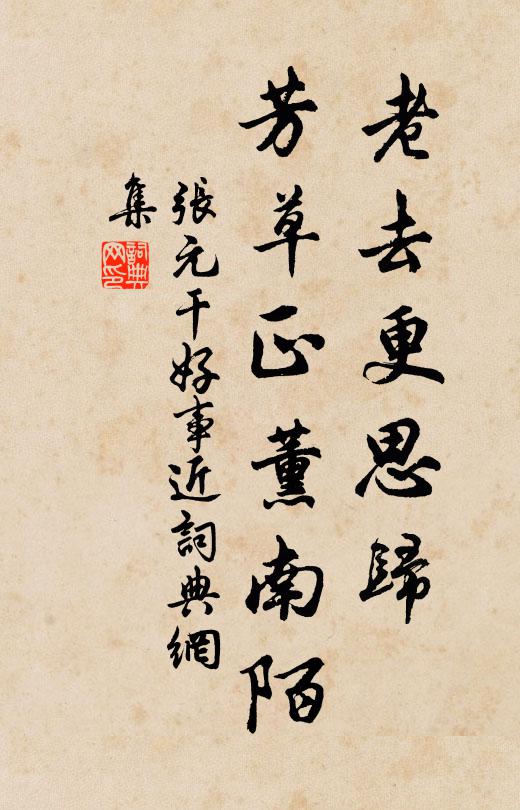 老去更思歸
芳草正薰南陌
張元干好事近詞典網
集
詞典網印